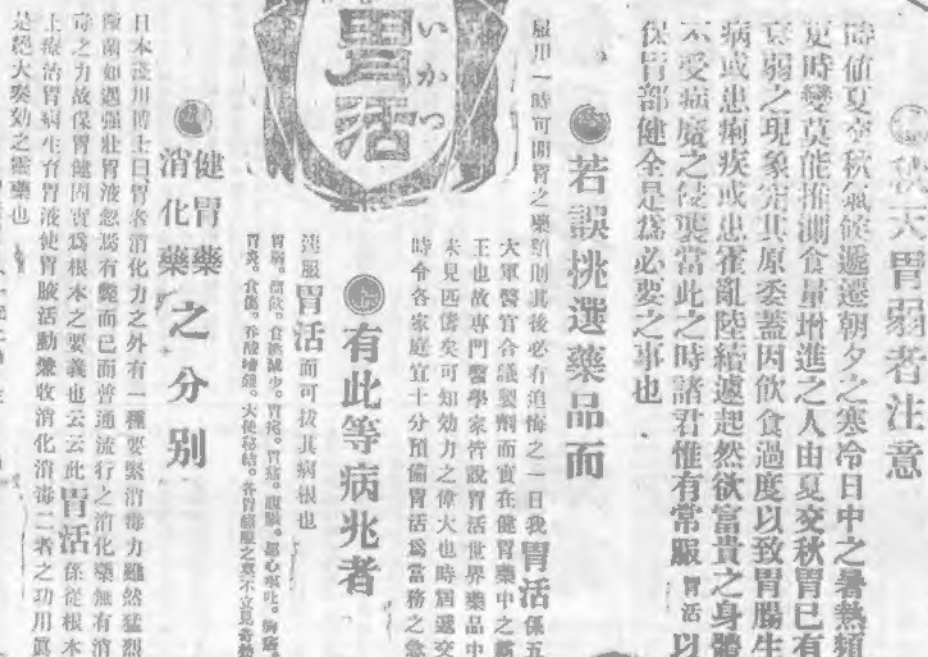 秋天胃弱者注意
時值夏交秋氣候遞遷朝夕之寒冷日中之暑熱頻
更時變莫能推測食量增進之人由夏交秋胃已有
衰弱之現象究其原委蓋因飲食過度以致胃腸生
病或患痢疾或患霍亂陸續遽起然欲富貴之身體
不受病魔之侵襲當此之時諸君惟有常服胃活以
保胃部健全是爲必要之事也
若誤挑選藥品而
服用一時可開胃之藥類則其後必有追悔之一日我胃活係五
大軍醫官合議製劑而實在健胃藥中之霸
王也故專門醫學家皆說胃活世界藥品中
未見匹儔矣可知効力之偉大也時屆遞交
時令各家庭宜十分預備胃活爲當務之急
有此等病兆者
胃活而可拔其病根也
胃弱。溜飲。食慾減少。胃痛。腹脹。惡心嘔吐。胸痛。
胃炎。食傷。吞酸嘈雜。大便秘結。各胃
いかつ
胃活
健胃藥
消化藥
之分別
日本淺川博士曰胃者消化力之外有一種要緊消毒力雖然猛烈
如遇强壯胃液忽焉有斃而已而普通流行之消化藥無有消
毒之力故保胃健固實爲根本之要義也云云此胃活係從根本
上療治胃病生育胃液使胃腺活動兼收消化消毒二者之功用眞
是絕大奏効之靈藥也